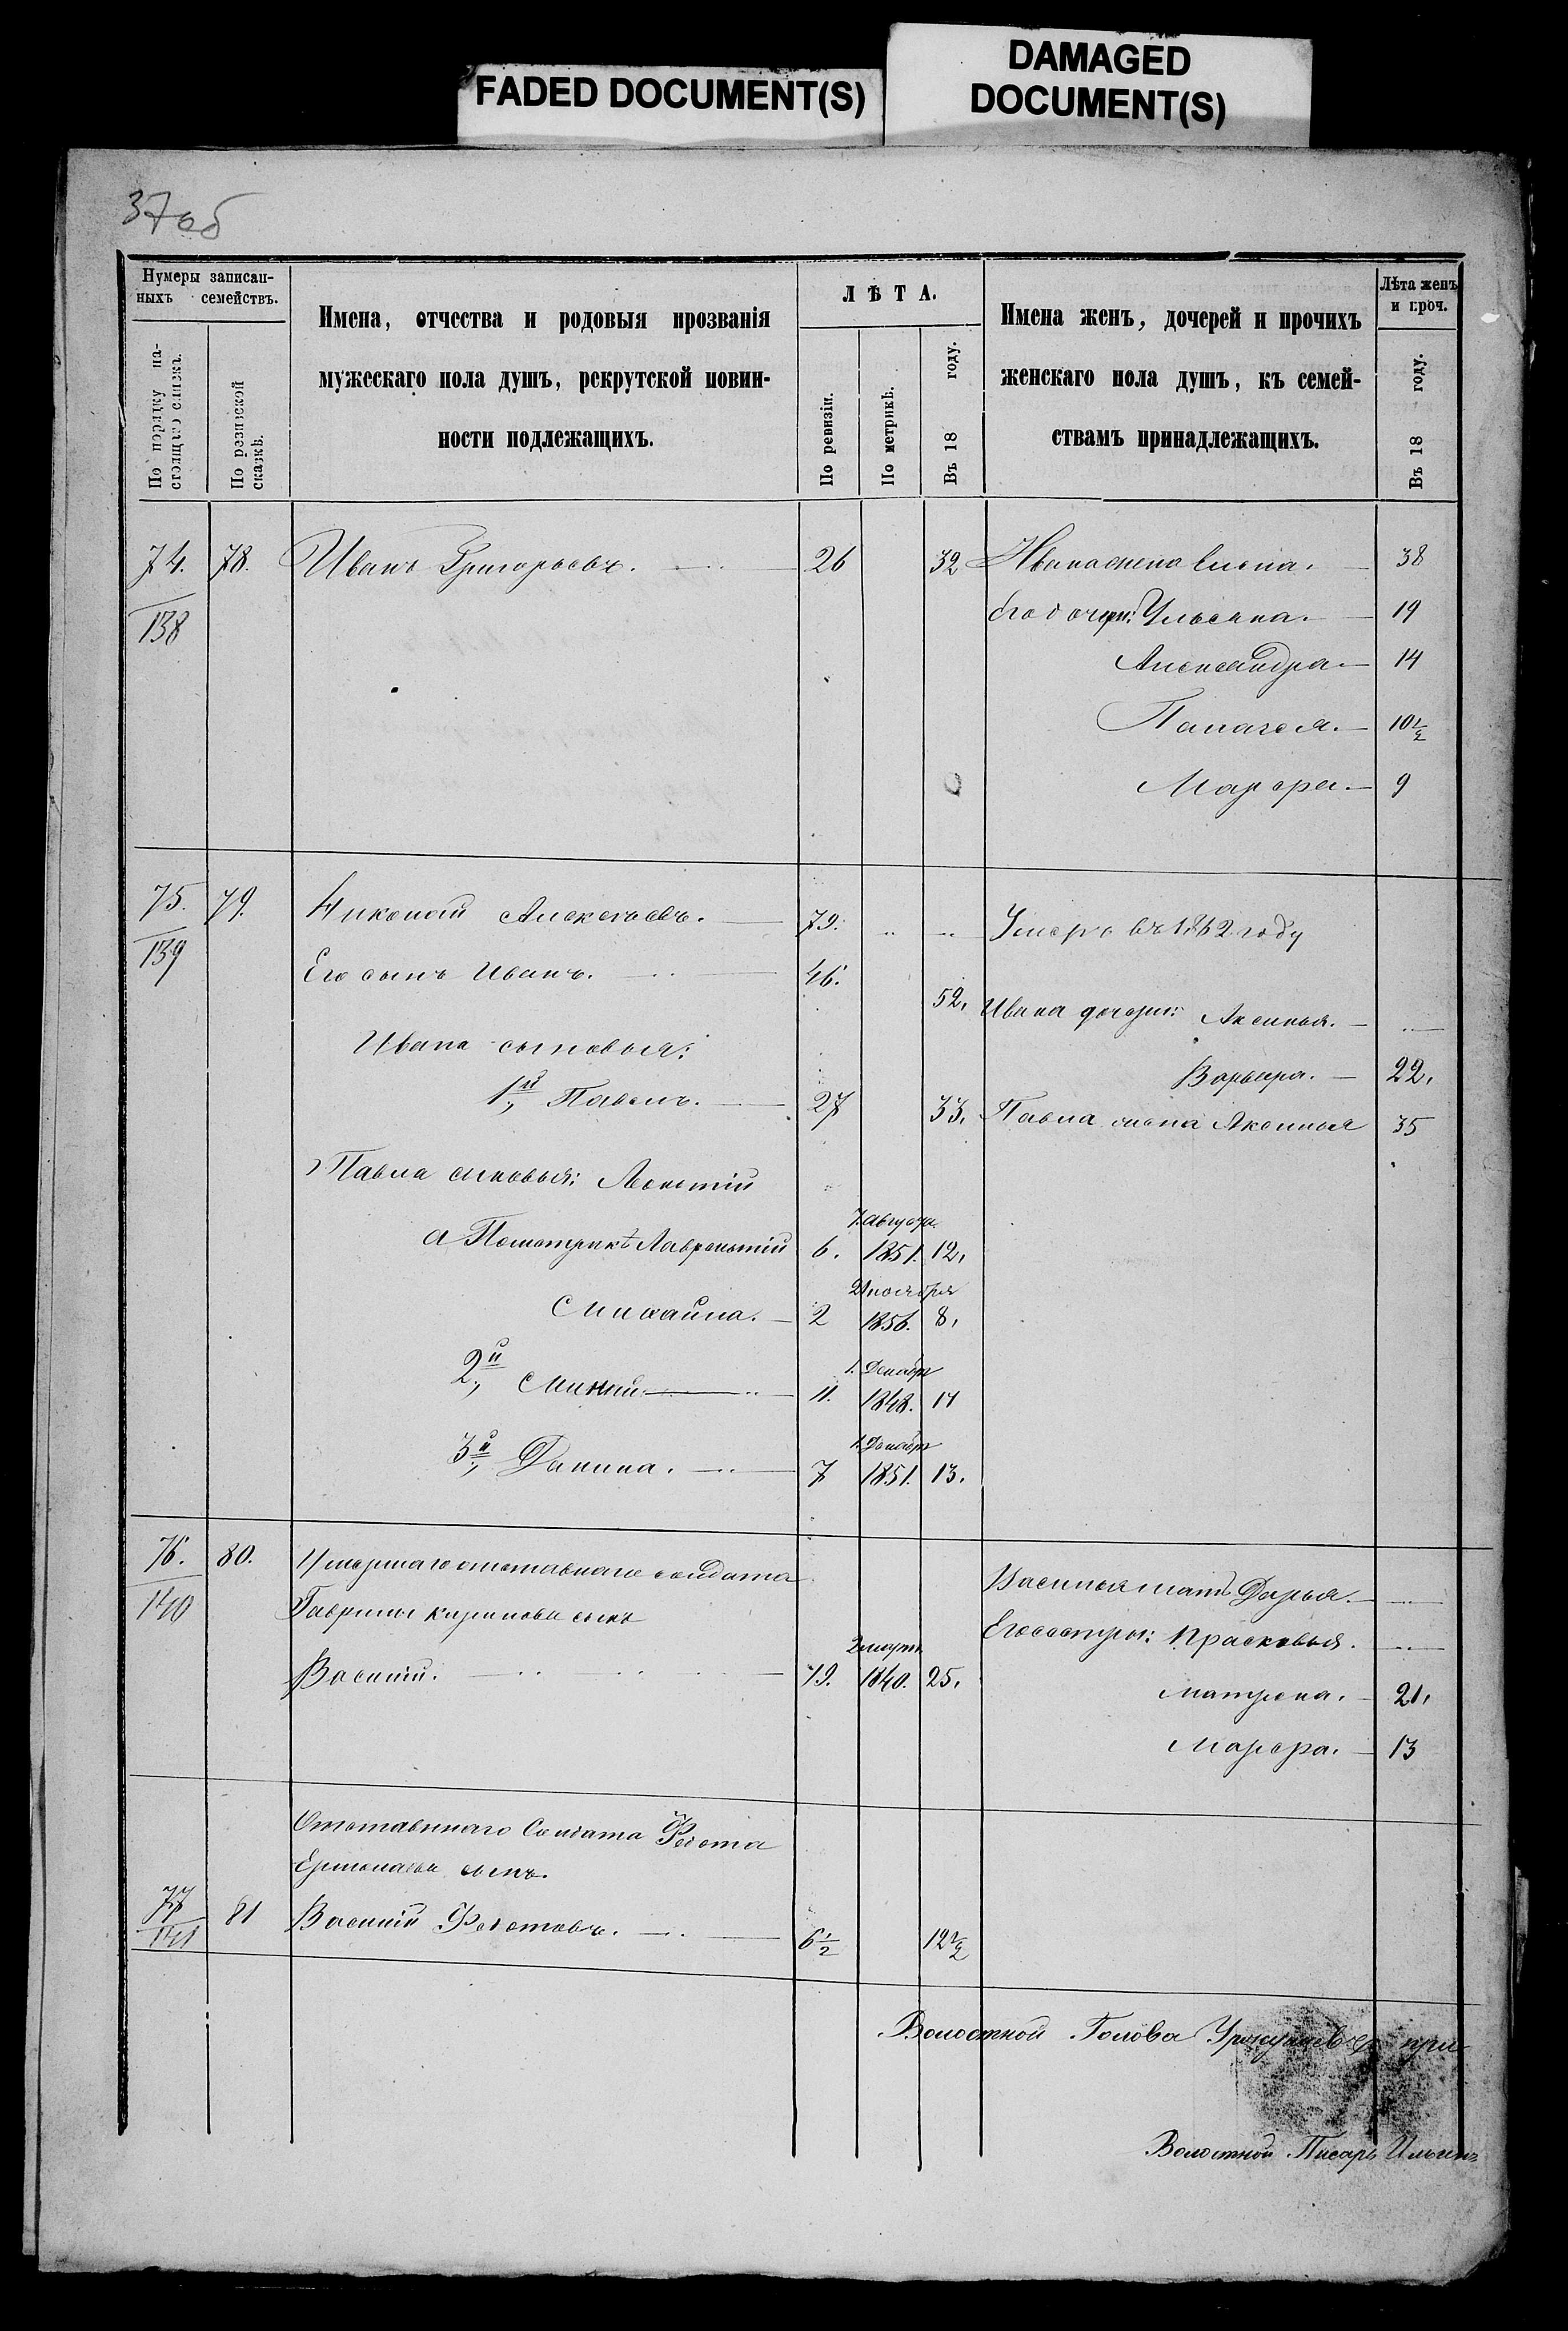 FADED DOCUMENT(S)
DAMAGED
DOCUMENT(S)
37об
Нумеры записан-
ныхъ семействъ.
По порядку на-
стоящаго списка.
По ревизской
сказкѣ.
Имена, отчества и родовыя прозванія
мужескаго пола душъ, рекрутской повин-
ности подлежащихъ.
ЛѢТА.
По ревизіи.
По метрикѣ.
Въ 18 году.
Имена женъ, дочерей и прочихъ
женскаго пола душъ, къ семей-
ствамъ принадлежащихъ.
Лѣта женъ
и проч.
Въ 18 году.
74. 78. Иванъ Григорьевъ. 26 32 Ивана жена Елена. 38
138
Его дочери: Ульяна. 19
Александра 14
Палагея. 10 1/2
Марфа 9
75. 79. Николай Алексеевъ. 73. Умеръ въ 1862 году
139
Его сынъ Иванъ. 46. 52. Ивана дочери: Аксинья.
Ивана сыновья:
Варвара. 22.
1й, Павелъ. 27 33. Павла жена Аксинья 35
Павла сыновья: Леонтій
7 августа
а По метрикѣ Лаврентій 6. 1851. 12.
21 ноября
Михайла. 2 1856. 8.
1 Декабр
2й, Минай 11. 1848. 17
1 Декабр
3й, Данила. 7 1851. 13.
76. 80. Умершаго отставнаго солдата
140
Гаврилы Кирилова сынъ
Василья мать Дарья.
Его сестры: Прасковья.
Василій. 19. 1840. 25.
Матрена. 21.
Марфа. 13
Отставнаго Солдата Федота
Ермолаева сынъ.
77 81 Василій Федотовъ. 6 1/2 12 1/2
141
Волостной Голова
Волостной Писарь Ильинъ